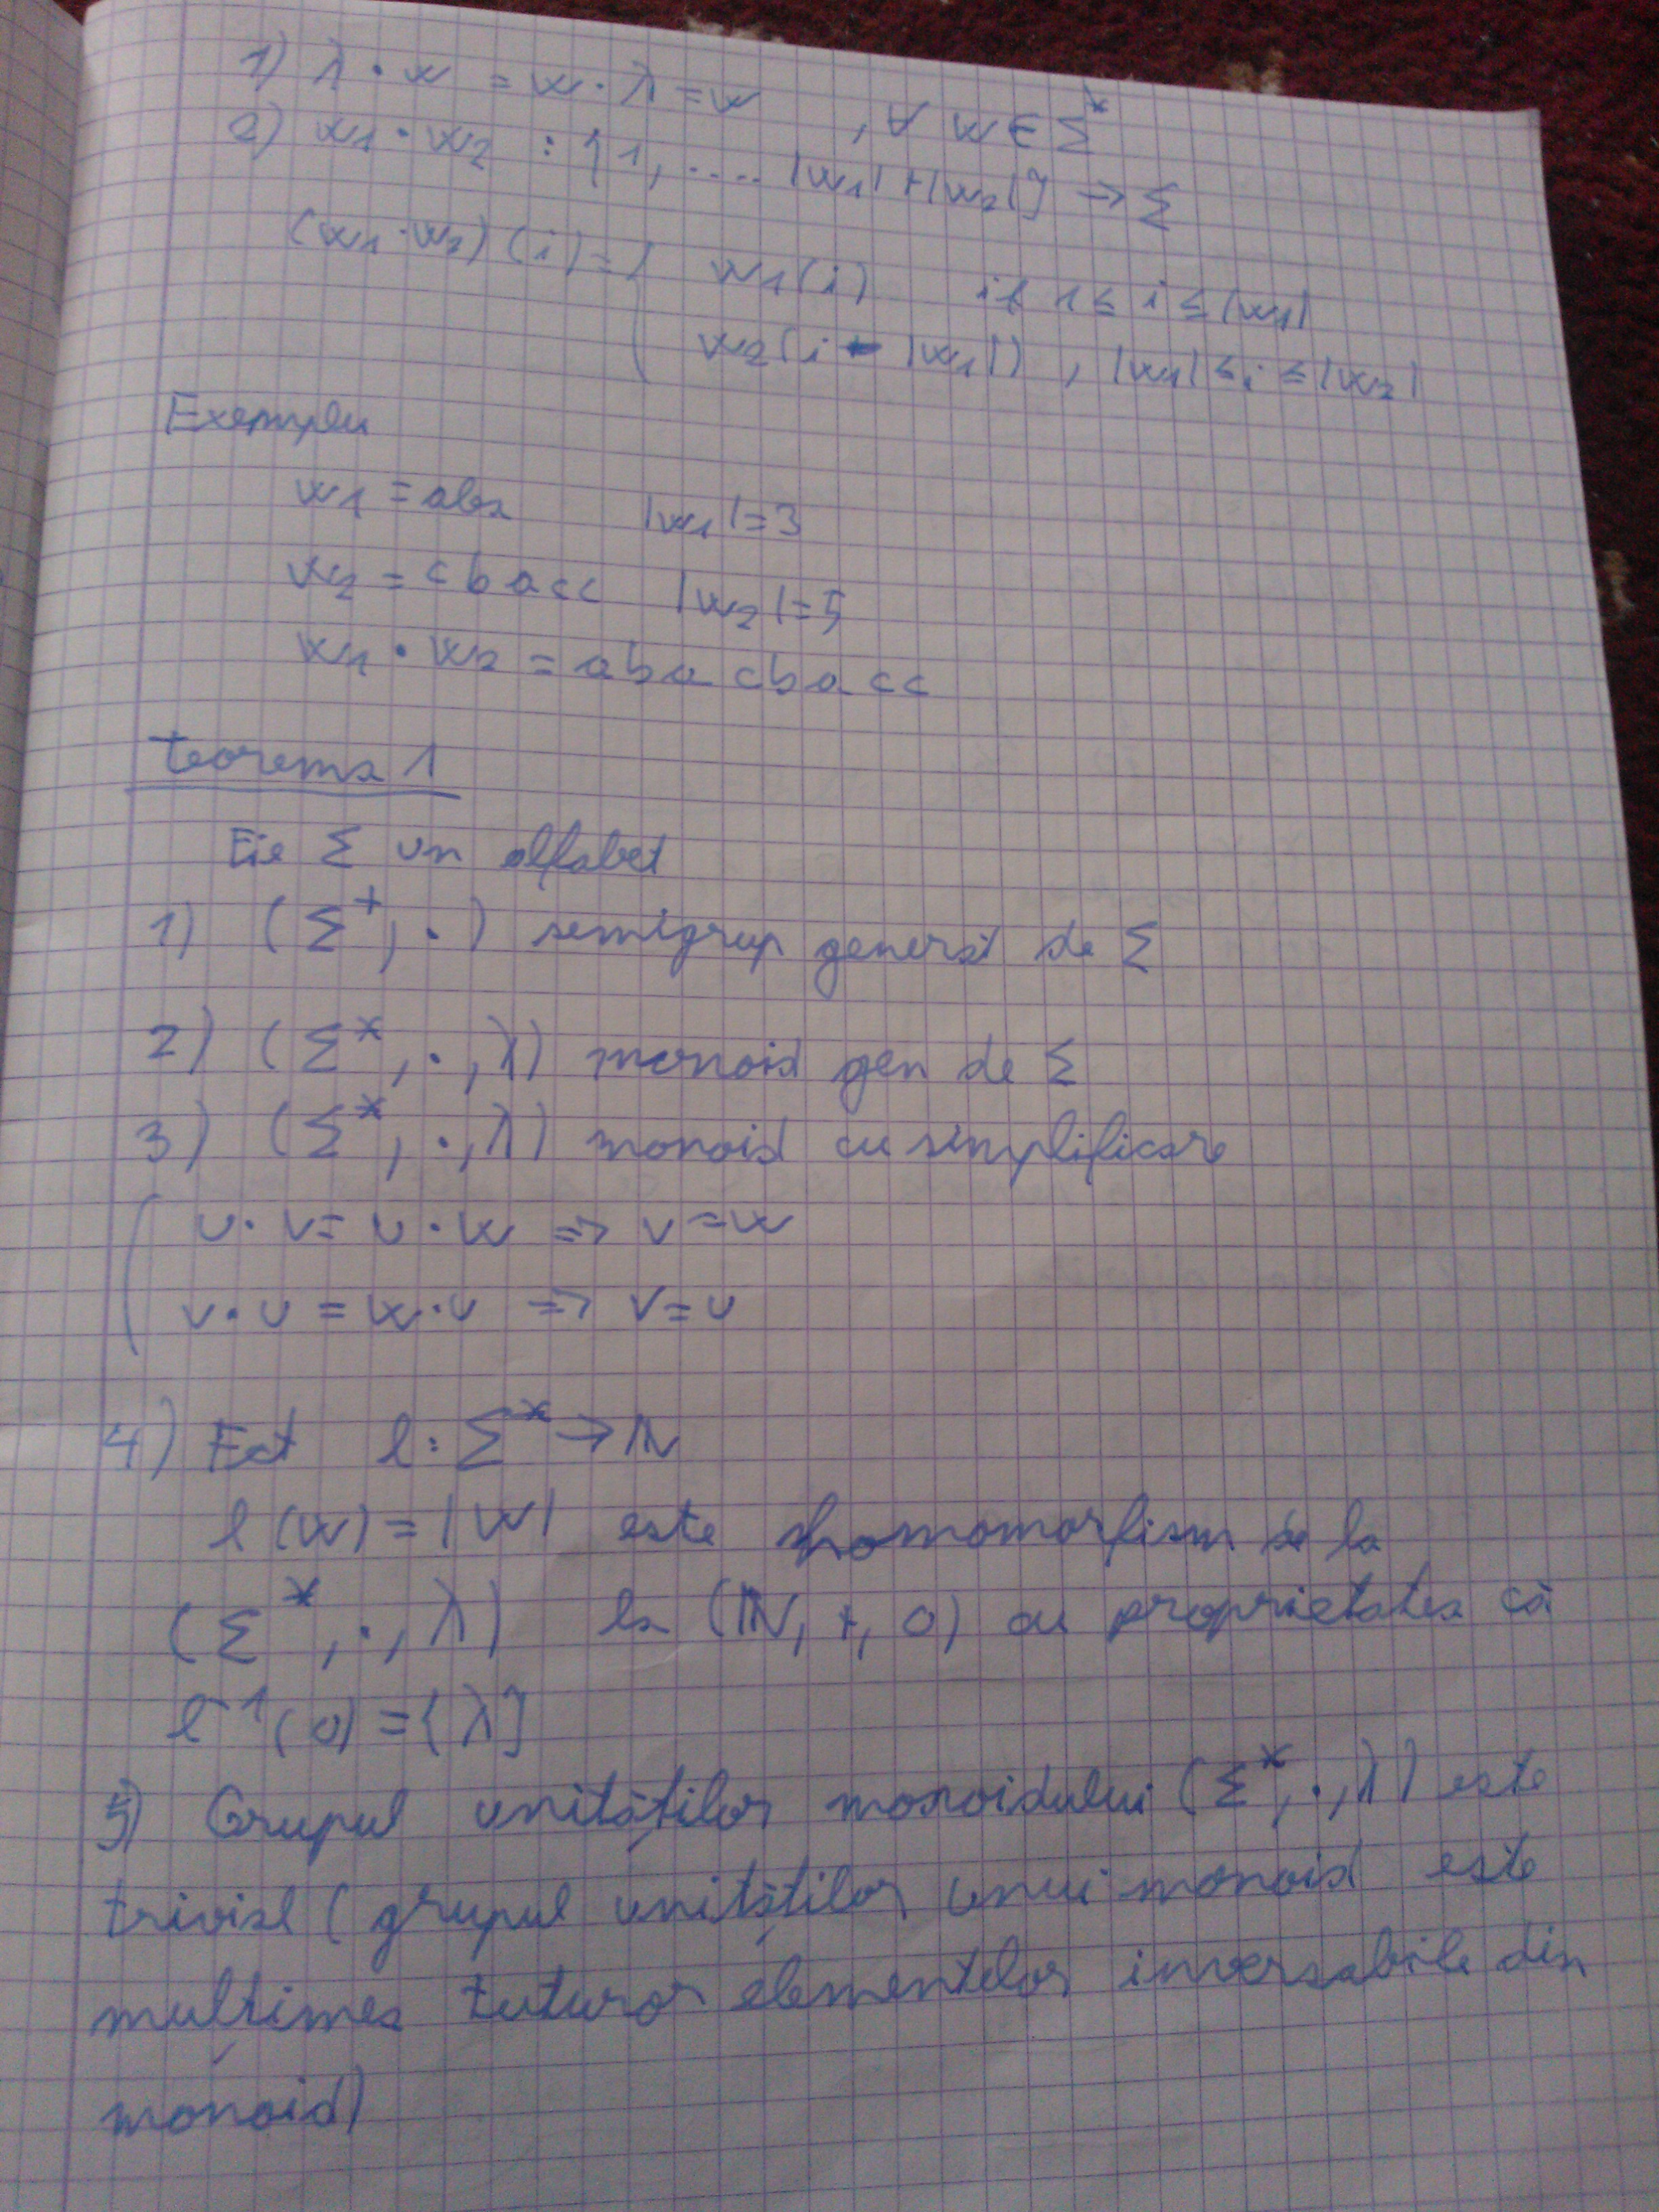 1) λ · w = w · λ = w , ∀ w ∈ Σ*
2) w1 · w2 : {1, .... |w1| + |w2|} → Σ
(w1 · w2) (i) = { w1(i) if 1 ≤ i ≤ |w1|
w2(i - |w1|) , |w1| ≤ i ≤ |w2|
Exemplu
w1 = aba |w1| = 3
w2 = cbacc |w2| = 5
w1 · w2 = abacbacc
Teorema 1
Fie Σ un alfabet
1) (Σ⁺, ·) semigrup generat de Σ
2) (Σ*, ·, λ) monoid gen de Σ
3) (Σ*, ·, λ) monoid cu simplificare
( u · v = u · w => v = w
v · u = w · u => v = u
4) Fct l : Σ* → ℕ
l(w) = |w| este homomorfism de la
(Σ*, ·, λ) la (ℕ, +, 0) cu proprietatea că
l⁻¹(0) = {λ}
5) Grupul unităților monoidului (Σ*, ·, λ) este
trivial (grupul unităților unui monoid este
mulțimea tuturor elementelor inversabile din
monoid)